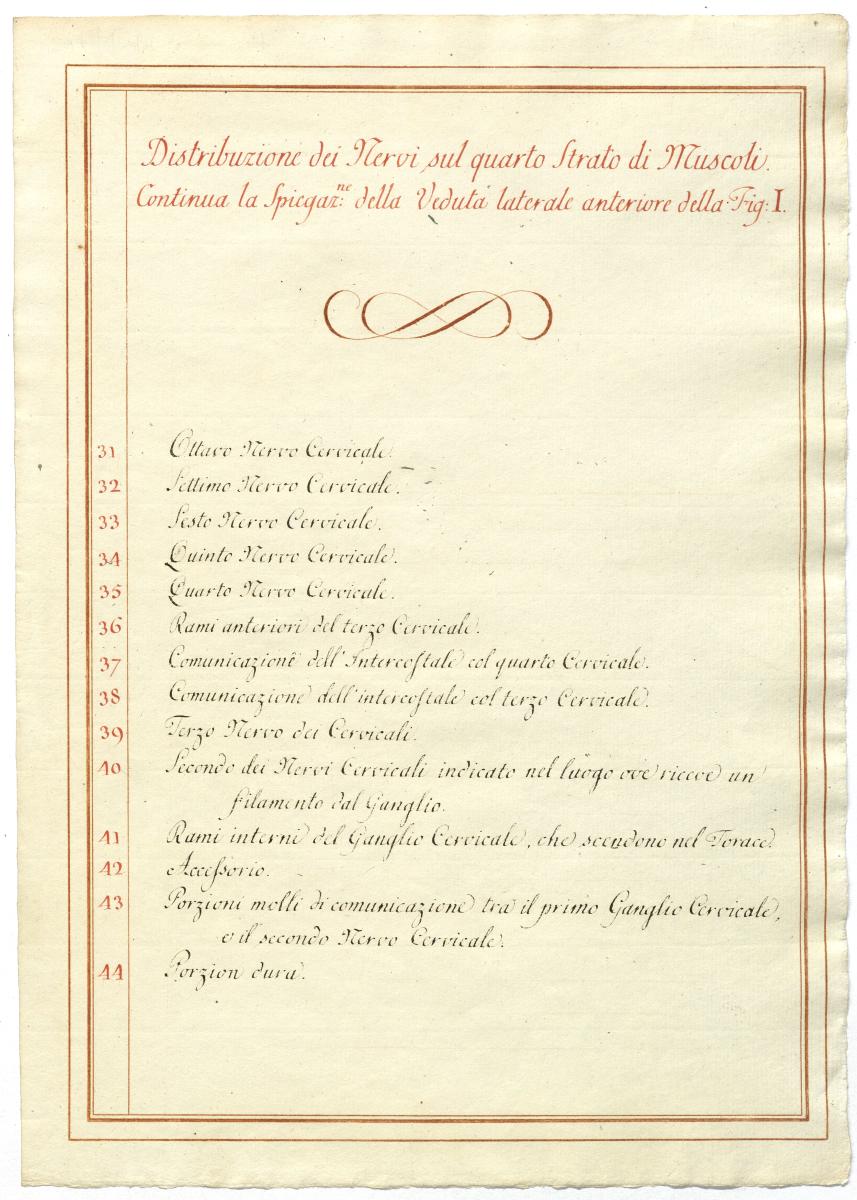 Distribuzione dei Nervi sul quarto Strato di Muscoli.
Continua la Spiegaz:ne della Veduta laterale anteriore della Fig: I.
31 Ottavo Nervo Cervicale.
32 Settimo Nervo Cervicale.
33 Sesto Nervo Cervicale.
34 Quinto Nervo Cervicale.
35 Quarto Nervo Cervicale.
36 Rami anteriori del terzo Cervicale.
37 Comunicazione dell'Intercoſtale col quarto Cervicale.
38 Comunicazione dell'intercoſtale col terzo Cervicale.
39 Terzo Nervo dei Cervicali.
40 Secondo dei Nervi Cervicali indicato nel luogo ove riceve un
filamento dal Ganglio.
41 Rami interni del Ganglio Cervicale, che scendono nel Torace.
42 Acceſsorio.
43 Porzioni molli di comunicazione tra il primo Ganglio Cervicale,
e il secondo Nervo Cervicale.
44 Porzion dura.